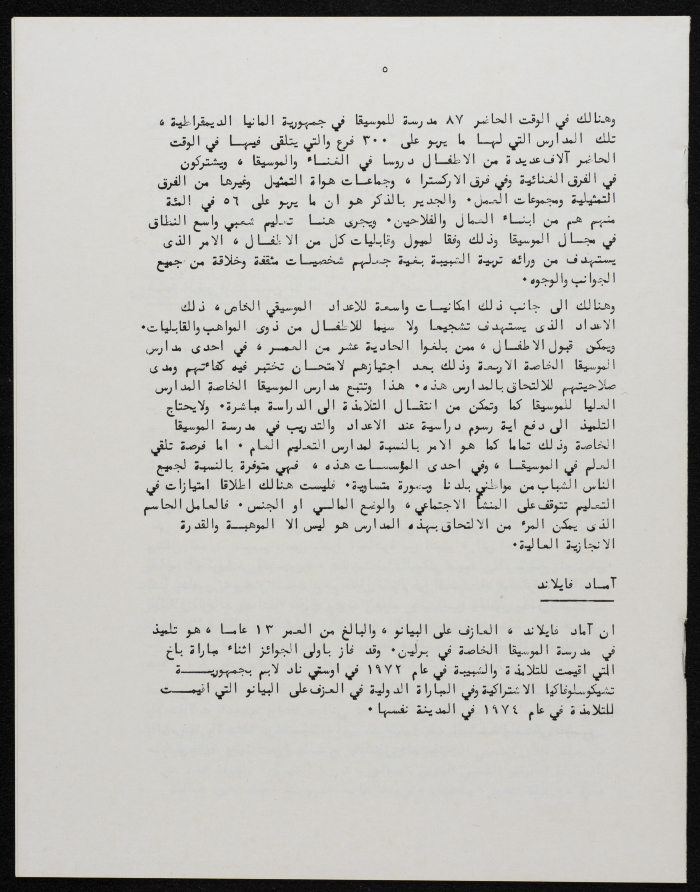 ٥
وهنالك في الوقت الحاضر ٨٧ مدرسة للموسيقا في جمهورية المانيا الديمقراطية ،
تلك المدارس التي لهـا ما يربو على ٣٠٠ فرع والتي يتلقى فيهـا في الوقت
الحاضر آلاف عديدة من الاطفـال دروسا في الغنـاء والموسيقا ، ويشتركون
في الفرق الغنائية وفي فرق الاركسترا ، وجماعـات هواة التمثيل وغيرها من الفرق
التمثيلية ومجموعات العمل. والجدير بالذكر هو ان ما يربو على ٥٦ في المئة
منهم هم من ابنـاء العمال والفلاحين. ويجرى هنـا تعليم شعبي واسع النطاق
في مجـال الموسيقا وذلك وفقا لميول وقابليات كل من الاطفـال ، الامر الذى
يستهدف من ورائه تربية الشبيبة بغية جعلهم شخصيـات مثقفة وخلاقة من جميع
الجوانب والوجوه.
وهنالك الى جانب ذلك امكانيـات واسعة للاعداد الموسيقي الخاص ، ذلك
الاعداد الذى يستهدف تشجيعا ولا سيما للاطفـال من ذوى المواهب والقابليات.
ويمكن قبول الاطفـال ، ممن بلغوا الحادية عشر من العمـر ، في احدى مدارس
الموسيقا الخاصة الاربعة وذلك بعـد اجتيازهم لامتحـان تختبر فيه كفاءتهم ومدى
صلاحيتهم للالتحاق بالمدارس هذه. هذا وتتبع مدارس الموسيقا الخاصة المدارس
العليا للموسيقا كما وتمكن من انتقـال التلامذة الى الدراسة مباشرة. ولايحتاج
التلميذ الى دفع اية رسوم دراسية عند الاعداد والتدريب في مدرسة الموسيقا
الخاصة وذلك تماما كما هو الامر بالنسبة لمدارس التعليم العام . اما فرصة تلقي
العلم في الموسيقـا ، وفي احدى المؤسسـات هذه ، فهي متوفرة بالنسبة لجميع
الناس الشباب من مواطني بلدنا وبصورة متساوية. فليست هنالك اطلاقا امتيازات في
التعليم تتوقف على المنشأ الاجتماعي ، والوضع المالـي او الجنس. فالعامل الحاسم
الذى يمكن المرء من الالتحاق بهذه المدارس هو ليس الا الموهبـة والقدرة
الانجازية العالية.
آمـاد فايلاند
ان آماد فايلاند ، العازف على البيانو ، والبالغ من العمر ١٣ عامـا ، هو تلميذ
في مدرسة الموسيقا الخاصة في برلين. وقد فاز باولى الجوائز اثناء مباراة باخ
التي اقيمت للتلامذة والشبيبة في عام ١٩٧٢ في اوستي ناد لابم بجمهوريـــة
تشيكوسلوفاكيا الاشتراكية وفي المباراة الدولية في العزف على البيانو التي اقيمــت
للتلامذة في عام ١٩٧٤ في المدينة نفسها.